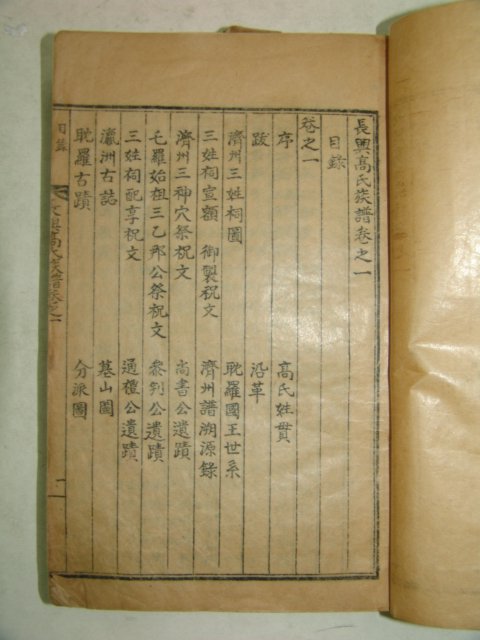 長興高氏族譜卷之一
目錄
卷之一
序 高氏姓貫
跋 沿革
濟州三姓祠圖 耽羅國王世系
三姓祠宣額 御製祝文 濟州譜溯源錄
濟州三神穴祭祝文 尙書公遺蹟
乇羅始祖三乙那公祭祝文 叅判公遺蹟
三姓祠配享祝文 通禮公遺蹟
瀛洲古誌 墓山圖
耽羅古蹟 分派圖
目錄
長興高氏族譜卷之一